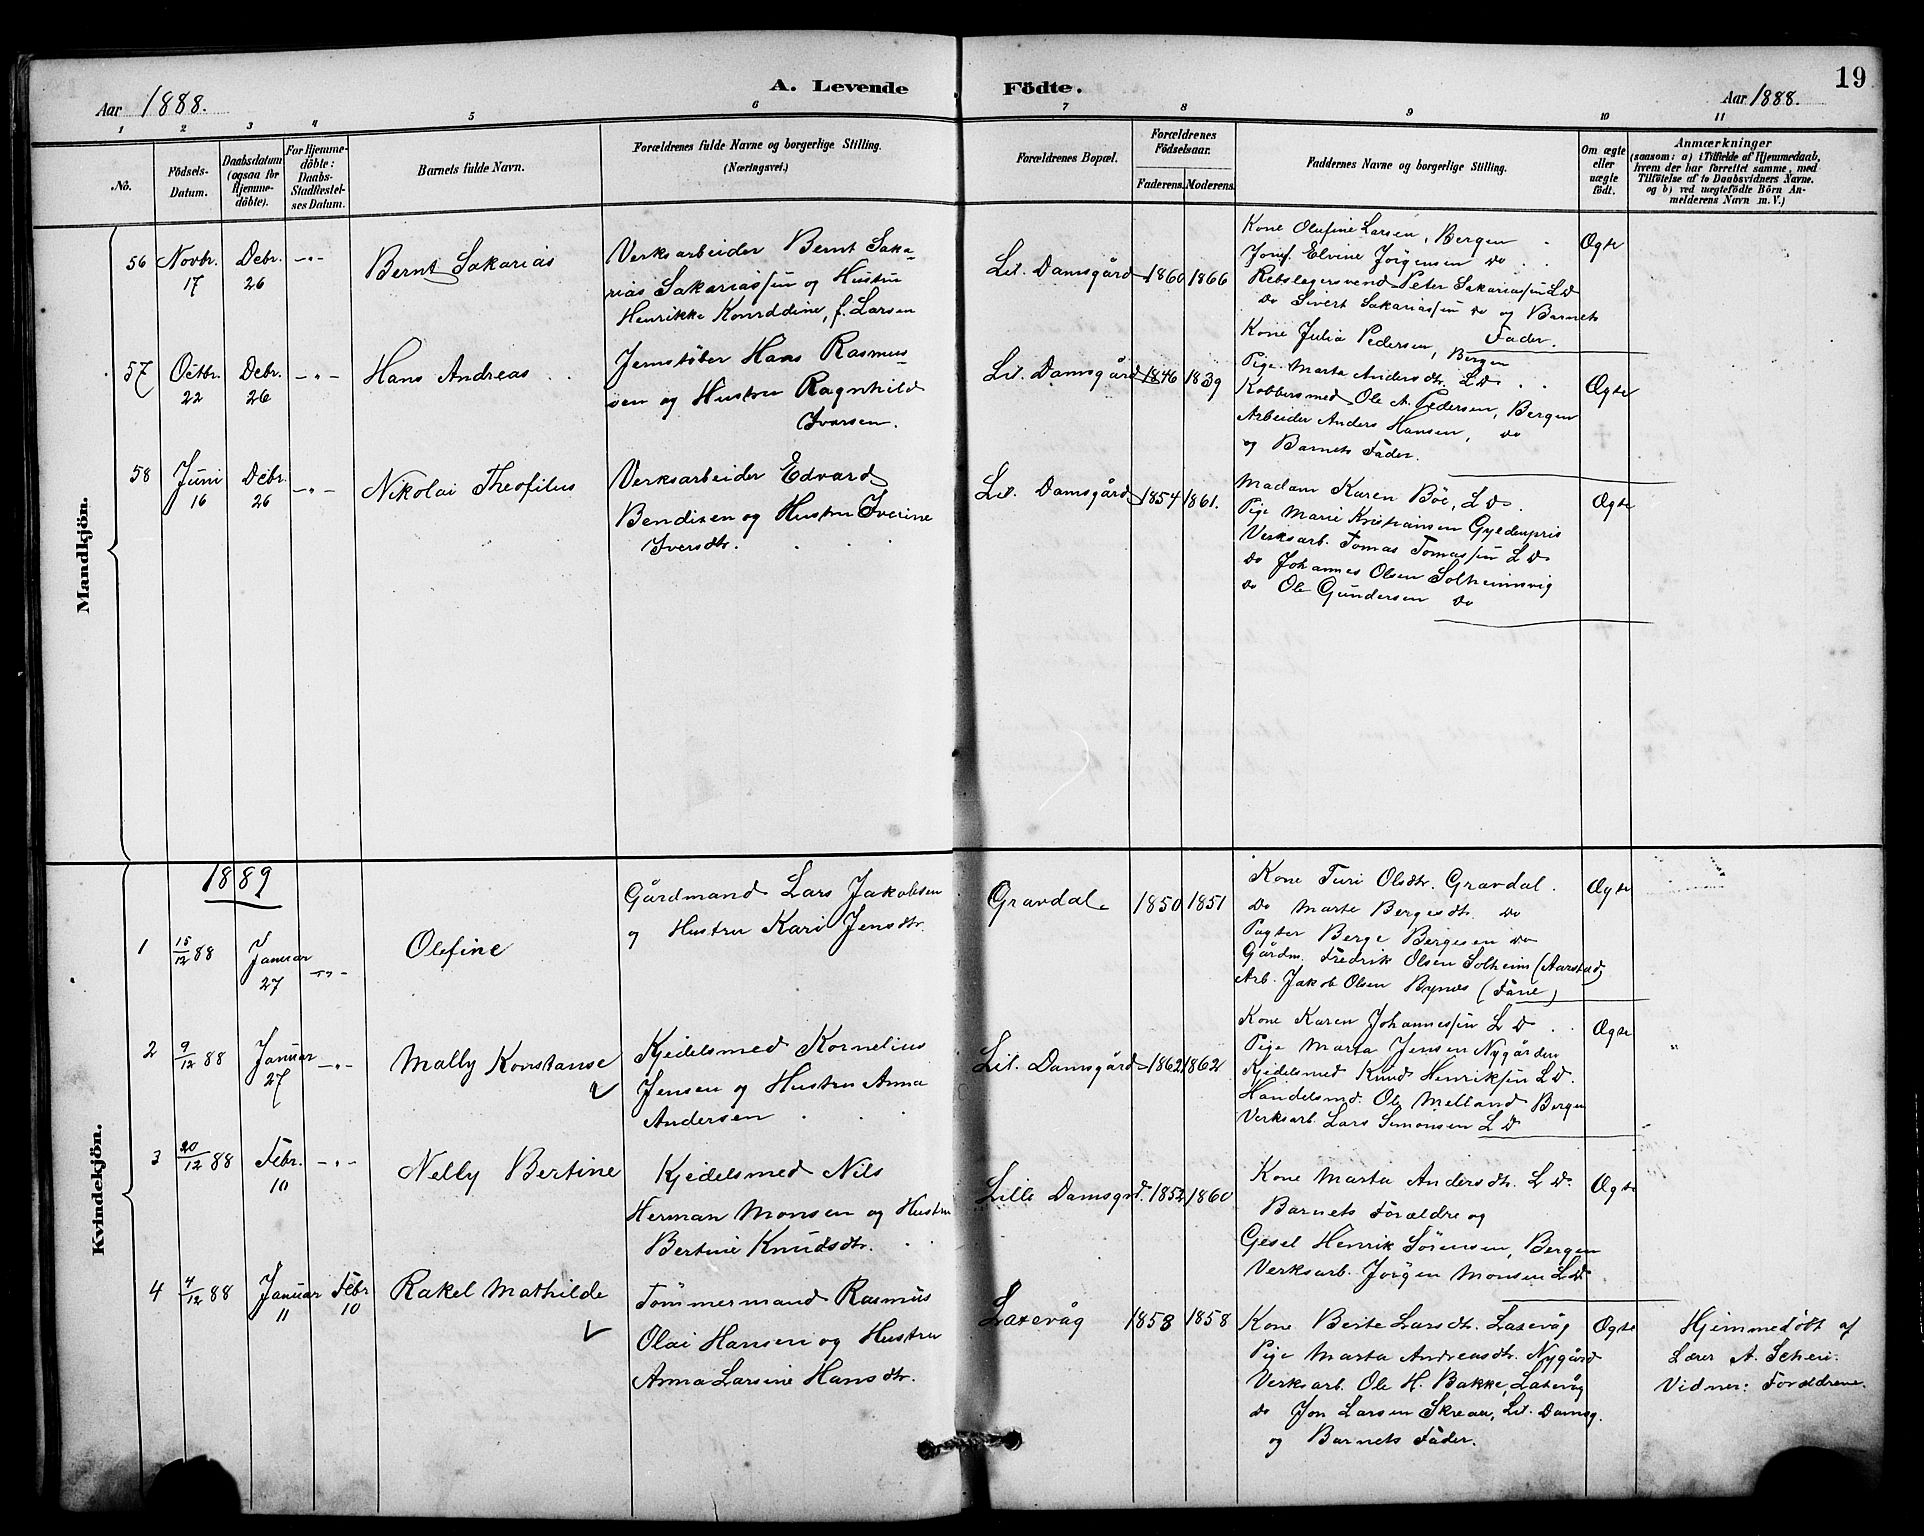 19
A. Levende Födte.
Aar 1888.
Aar 1888.
1 2 3 4 5 6 7 8 9 10 11
No.
Födsels-Datum.
Daabsdatum (ogsaa for Hjemme-döbte).
For Hjemme-döbte: Daabs-Stadfæstel-ses Datum.
Barnets fulde Navn.
Forældrenes fulde Navne og borgerlige Stilling. (Næringsvei.)
Forældrenes Bopæl.
Forældrenes Födselsaar.
Faderens. Moderens.
Faddernes Navne og borgerlige Stilling.
Om ægte eller uægte födt.
Anmærkninger
(saasom: a) i Tilfælde af Hjemmedaab,
hvem der har forrettet samme, med
Tilföielse af to Daabsvidners Navne.
og b) ved uægtefödte Börn An-
melderens Navn m. V.)
Mandkjön.
56 Novbr. 17 Debr. 26 -"-
Bernt Sakarias
Verksarbeider Bernt Saka-
rias Sakariassen og Hustru
Henrikke Konrddine, f. Larsen
Lil. Damsgård 1860 1866
Kone Olufine Larsen, Bergen
Jomf. Elvine Jörgensen do
Rebslagersvend Peter Sakariassen LD
do Sivert Sakariassen do og Barnets
Fader.
Ægte
57 Octbr. 22 Debr. 26 -"-
Hans Andreas
Jernstöber Hans Rasmus-
sen og Hustru Ragnhild
Ivarsen.
Lil. Damsgård 1846 1839
Kone Julia Pedersen, Bergen
Pige Marta Andersdtr. LD.
Kobbersmed Ole A. Pedersen, Bergen
Arbeider Anders Hansen, do
og Barnets Fader.
Ægte
58 Juni 16 Debr. 26 -"-
Nikolai Theofilus
Verksarbeider Edvard
Bendixen og Hustru Iverine
Iversdtr.
Lil. Damsgård 1854 1861.
Madam Karen Böe, LD.
Pige Marie Kristiansen Gyldenpris
Verksarb. Tomas Tomassen LD
do Johannes Olsen Solheimsvig
do Ole Gundersen do
Ægte
Kvindekjön.
1889
1 15/12 88 Januar 27 -"-
Olefine
Gårdmand Lars Jakobsen
og Hustru Kari Jensdtr.
Gravdal 1850 1851
Kone Turi Olsdtr. Gravdal.
do Marte Bergesdtr. do
Pagter Berge Bergesen do
Gårdm. Fredrik Olsen Solheim (Aarstad)
Arb. Jakob Olsen Bynes (Fane)
Ægte
2 9/12 88 Januar 27 -"-
Mally Konstanse
Kjedelsmed Kornelius
Jensen og Hustru Anna
Andersen
Lil. Damsgård 1862 1862
Kone Karen Johannessen LD
Pige Marta Jensen Nygården
Kjedelsmed Knud Henriksen LD.
Handelsmd. Ole Melland Bergen
Verksarb. Lars Simonsen LD
Ægte
3 20/12 88 Febr. 10 -"-
Nelly Bertine
Kjedelsmed Nils
Herman Monsen og Hustru
Bertine Knudsdtr.
Lille Damsgrd. 1852 1860
Kone Marta Andersdtr. LD.
Barnets Forældre og
Gesel Henrik Sörensen, Bergen
Verksarb. Jörgen Monsen LD
Ægte
4 4/12 88 Januar 11 Febr 10
Rakel Mathilde
Tömmermand Rasmus
Olai Hansen og Hustru
Anna Larsine Hansdtr.
Laxevåg 1858 1858
Kone Berte Larsdtr. Laxevåg
Pige Marta Andreasdtr. Nygård
Verksarb. Ole H. Bakke, Laxevåg
do Jon Larsen Skreaa, Lil. Damsg.
og Barnets Fader.
Ægte
Hjemmedöbt af
Lærer A. Scheri.
Vidner: Forældrene.